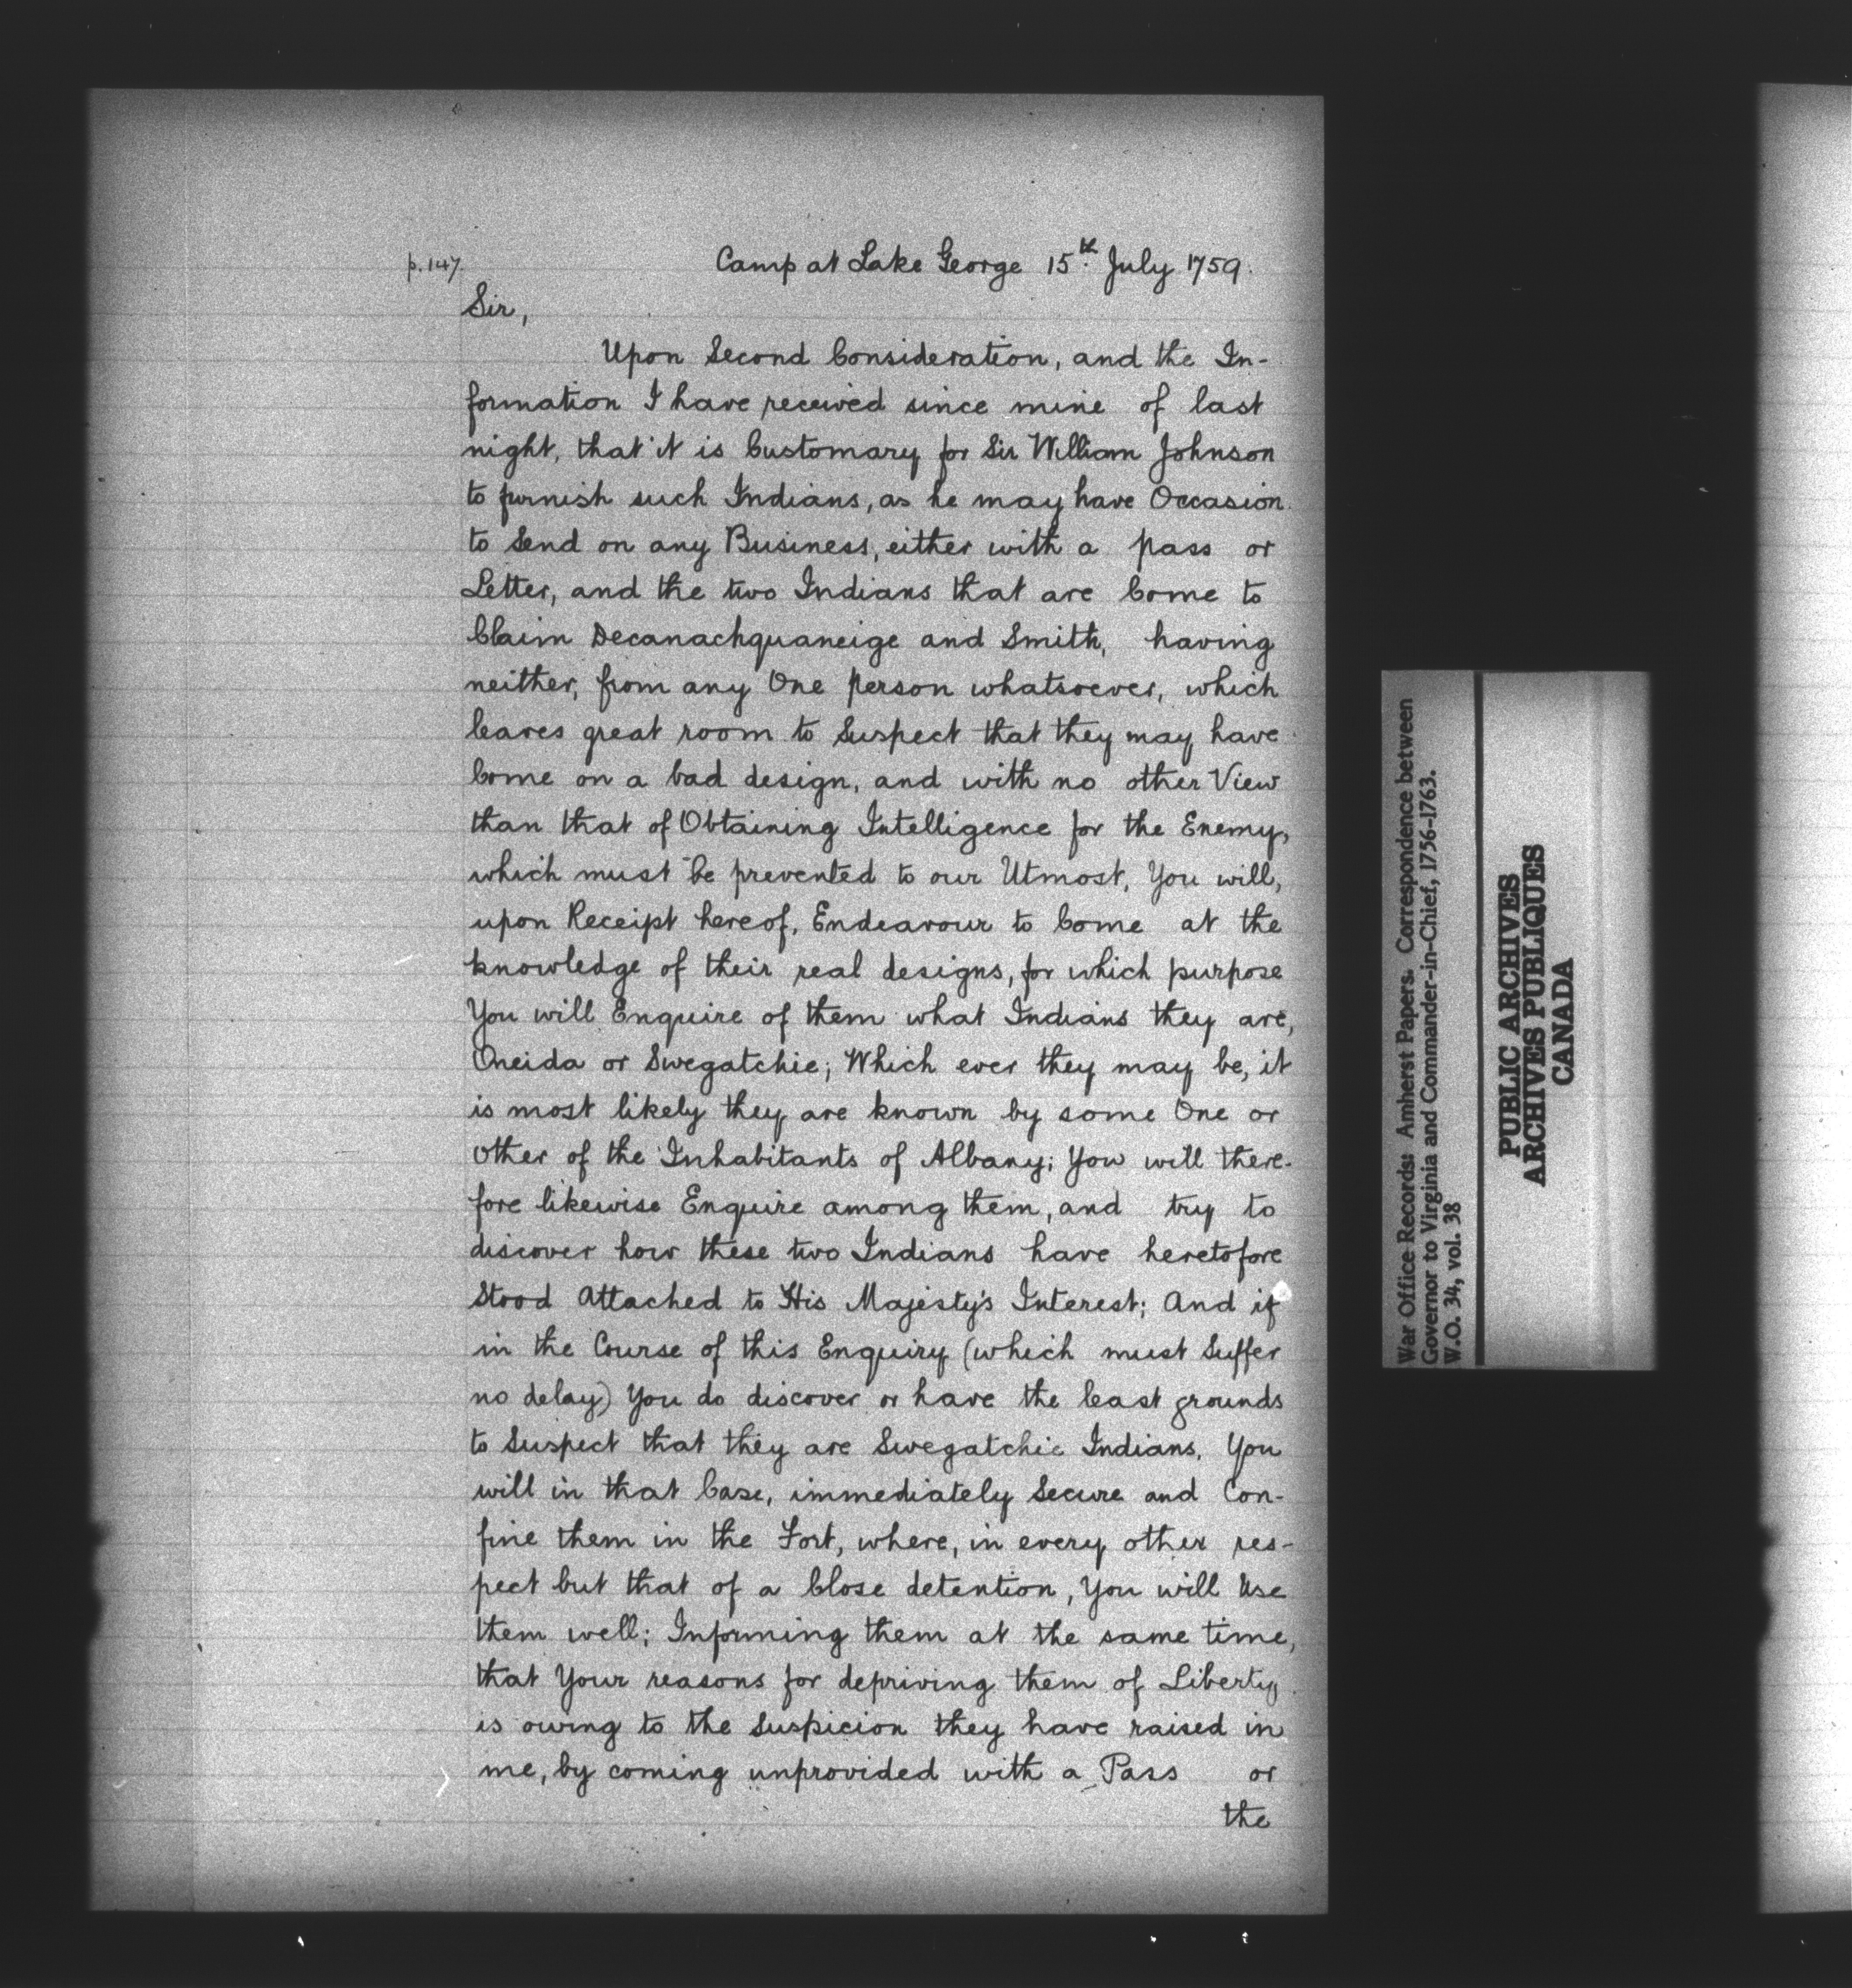 p.147.
Camp at Lake George 15th July 1759.
Sir,
Upon Second Consideration, and the In-
formation I have received since mine of last
night, that it is Customary for Sir William Johnson
to furnish such Indians, as he may have Occasion
to Send on any Business, either with a pass or
Letter, and the two Indians that are Come to
Claim Decanachquaneige and Smith, having
neither, from any One person whatsoever, which
leaves great room to Suspect that they may have
Come on a bad design, and with no other View
than that of Obtaining Intelligence for the Enemy,
which must be prevented to our Utmost, You will,
upon Receipt hereof, Endeavour to Come at the
knowledge of their real designs, for which purpose
You will Enquire of them what Indians they are,
Oneida or Swegatchie; Which ever they may be, it
is most likely they are known by some One or
Other of the Inhabitants of Albany; You will there-
fore likewise Enquire among them, and try to
discover how these two Indians have heretofore
Stood Attached to His Majesty's Interest; And if
in the Course of this Enquiry (which must Suffer
no delay) You do discover or have the least grounds
to Suspect that they are Swegatchie Indians, You
will in that Case, immediately Secure and Con-
fine them in the Fort, where, in every other res-
pect but that of a Close detention, You will Use
them well; Informing them at the same time,
that Your reasons for depriving them of Liberty
is owing to the Suspicion they have raised in
me, by coming unprovided with a Pass or
the
War Office Records: Amherst Papers. Correspondence between
Governor to Virginia and Commander-in-Chief, 1756-1763.
W.O. 34, vol. 38
PUBLIC ARCHIVES
ARCHIVES PUBLIQUES
CANADA